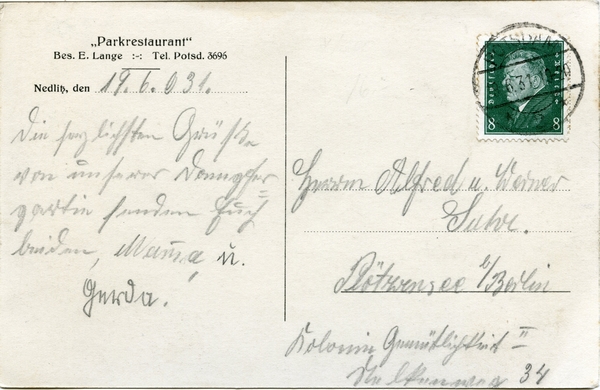 „Parkrestaurant"
Bes. E. Lange :-: Tel. Potsd. 3696
Nedlitz, den 19.6.031.
Die herzlichsten Grüße
von unserer Dampfer=
partie senden Euch
beiden, Mama u.
Gerda.
POTSDAM
Deutsches Reich
8 8
Herrn Alfred u. Werner
Plötzensee b/Berlin
Kolonie Gemütlichkeit II
34